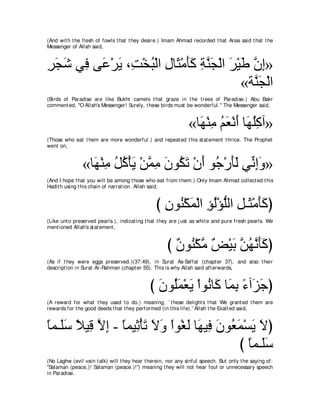 (And with the flesh of fowls that they desire.) Imam Ahmad recorded that Anas said that the
Messenger of Allah said,
«إِنَّ طَيْرَ الْجَنَّةِ كَأَمْثَالِ الْبُخْتِ، يَرْعَى فِي شَجَرِ
الْجَنَّة»
(Birds of Paradise are like Bukht camels that graze in the trees of Paradise.) Abu Bakr
commented, "O Allah's Messenger! Surely, these birds must be wonderful.'' The Messenger said,
«آكِلُهَا أَنْعَمُ مِنْهَا»
(Those who eat them are more wonderful.) and repeated this statement thrice. The Prophet
went on,
«وَإِنِّي لَأَرْجُو أَنْ تَكُونَ مِمَّنْ يَأْكُلُ مِنْهَا»
(And I hope that you will be among those who eat from them.) Only Imam Ahmad collected this
Hadith using this chain of narration. Allah said;
(كَأَمْثَـلِ اللُّؤْلُؤِ الْمَكْنُونِ )
(Like unto preserved pearls.), indicating that they are just as white and pure fresh pearls. We
mentioned Allah's statement,
(كَأَنَّهُنَّ بَيْضٌ مَّكْنُونٌ )
(as if they were eggs preserved.)(37:49), in Surat As-Saffat (chapter 37), and also their
description in Surat Ar-Rahman (chapter 55). This is why Allah said afterwards,
(جَزَآءً بِمَا كَانُواْ يَعْمَلُونَ )
(A reward for what they used to do.) meaning, `these delights that We granted them are
rewards for the good deeds that they performed (in this life).' Allah the Exalted said,
(لاَ يَسْمَعُونَ فِيهَا لَغْواً وَلاَ تَأْثِيماً - إِلاَّ قِيلاً سَلَـماً
سَلَـماً )
(No Laghw (evil vain talk) will they hear therein, nor any sinful speech. But only the saying of:
"Salaman (peace,)! Salaman (peace.)!'') meaning they will not hear foul or unnecessary speech
in Paradise.